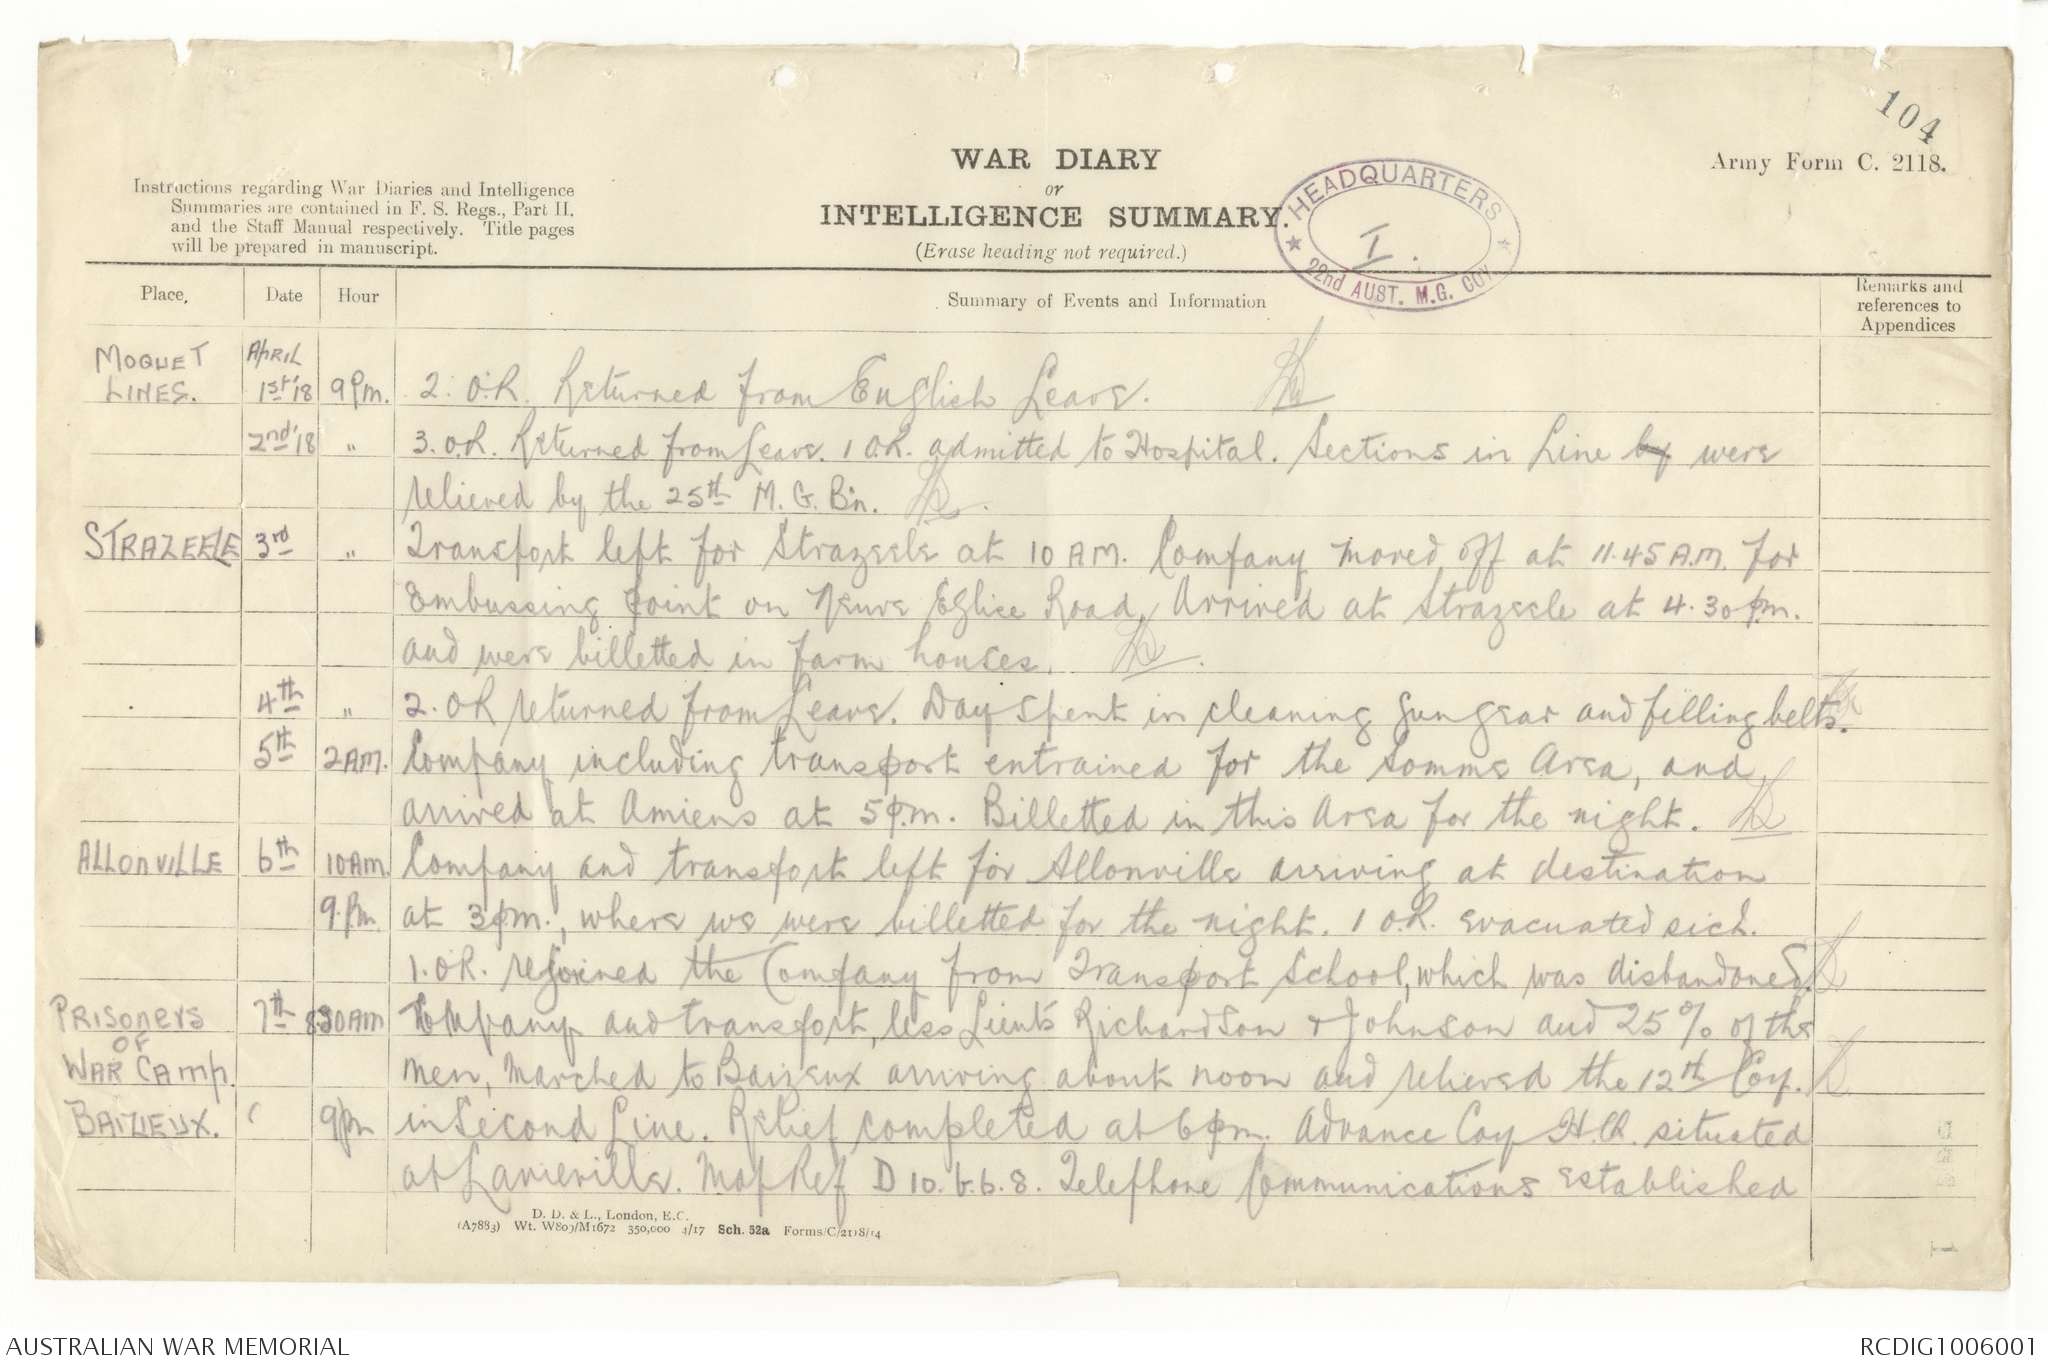 104
WAR DIARY
or
INTELLIGENCE SUMMARY.
(Erase heading not required.)
Army Form C. 2118.
Instructions regarding War Diaries and Intelligence
Summaries are contained in F. S. Regs., Part II.
and the Staff Manual respectively. Title pages
will be prepared in manuscript.
★ HEADQUARTERS ★
I.
22nd AUST. M.G. COY
Place. Date Hour Summary of Events and Information Remarks and
references to
Appendices
MOQUET April
LINES. 1st '18 9 P.m. 2. O.R. Returned from English Leave.
2nd '18 " 3. O.R. Returned from Leave. 1 O.R. admitted to Hospital. Sections in Line by were
relieved by the 25th M. G. B'n.
STRAZEELE 3rd " Transport left for Strazeele at 10 AM. Company moved off at 11.45 A.M. for
embussing point on Neuve Eglise Road. Arrived at Strazeele at 4.30 p.m.
and were billetted in farm houses.
4th " 2. OR returned from Leave. Day spent in cleaning gun gear and filling belts.
5th 2 AM. Company including transport entrained for the Somme Area, and
arrived at Amiens at 5 p.m. Billetted in this Area for the night.
ALLONVILLE 6th 10 AM Company and transport left for Allonville arriving at destination
9. P.m. at 3 p.m., where we were billetted for the night. 1 O.R. evacuated sick.
1. OR. rejoined the Company from Transport School, which was disbandoned.
PRISONERS 7th 8.30 AM Company and transport, less Lieuts Richardson & Johnson and 25% of the
OF
WAR CAMP men, marched to Baizeux arriving about noon and relieved the 12th Coy.
BAIZIEUX. " 9 pm in Second Line. Relief completed at 6 p.m. Advance Coy H.Q. situated
at Lavieville. Map Ref D 10. b. 6. 8. Telephone Communications established
D. D. & L., London, E.C.
(A7883) Wt. W809/M1672 350,000 4/17 Sch. 52a Forms/C/2118/14
AUSTRALIAN WAR MEMORIAL
RCDIG1006001